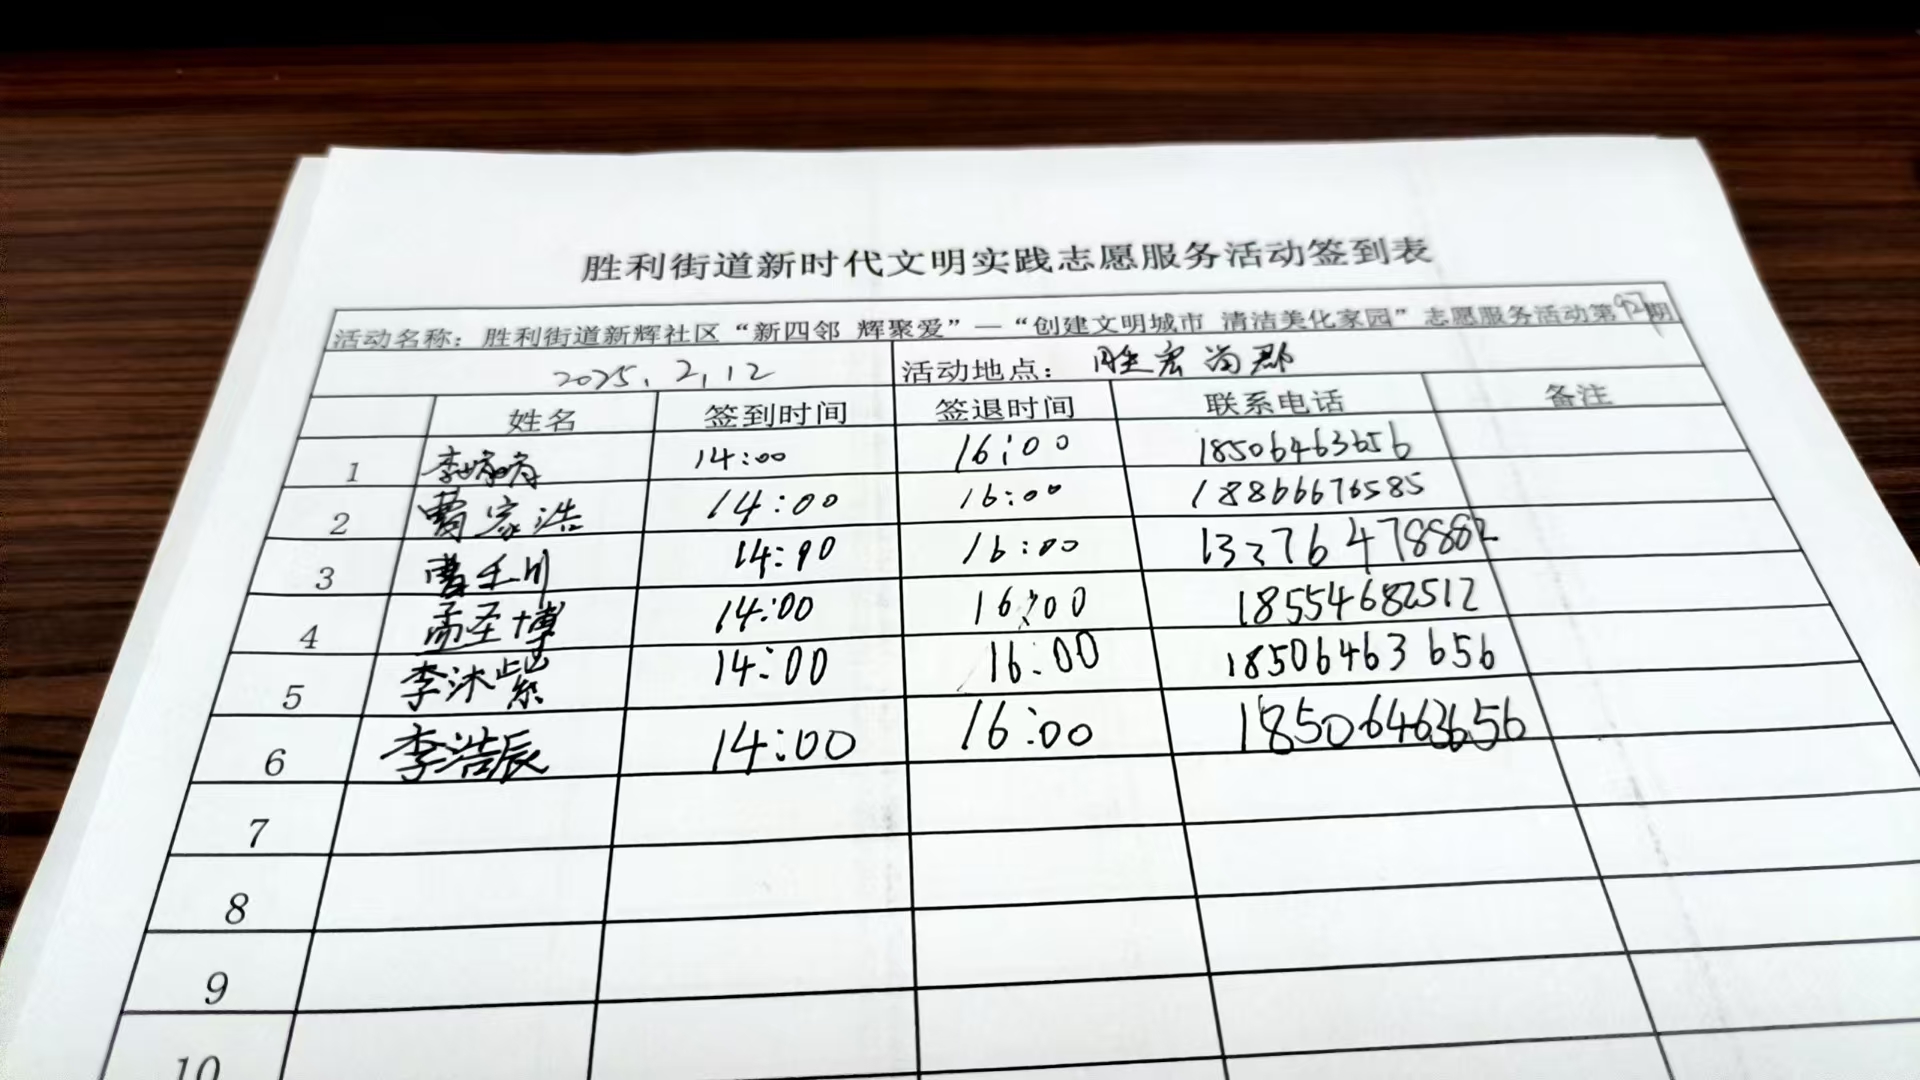 胜利街道新时代文明实践志愿服务活动签到表
活动名称：胜利街道新辉社区“新四邻 辉聚爱”—“创建文明城市 清洁美化家园”志愿服务活动第92期
2025.2.12 活动地点：胜宏尚郡
姓名 签到时间 签退时间 联系电话 备注
1 李 14:00 16:00 18506463656
2 曹家浩 14:00 16:00 18866676585
3 曹 14:00 16:00
4 孟圣博 14:00 16:00 18554682512
5 李沐紫 14:00 16:00 18506463656
6 李浩辰 14:00 16:00 18506463656
7
8
9
10